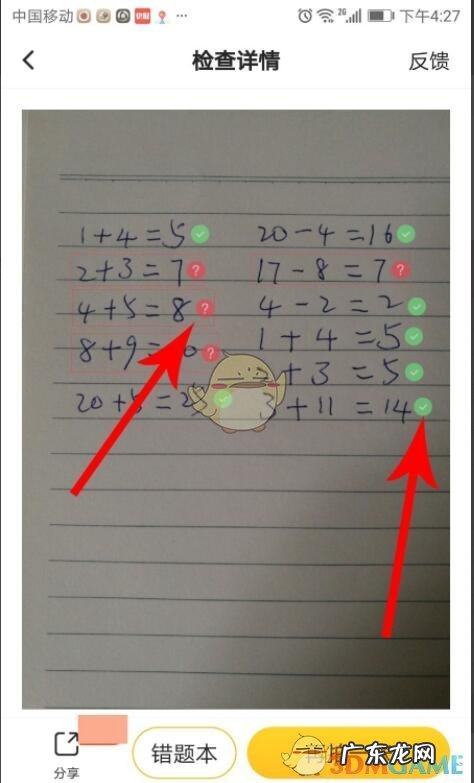 中国移动 2G 下午4:27
检查详情 反馈
1+4=5 20-4=16
2+3=7 17-8=7
4+5=8 4-2=2
8+9= 1+4=5
+3=5
20+5=25 3+11=14
分享 错题本
广东龙网
3DMGAME